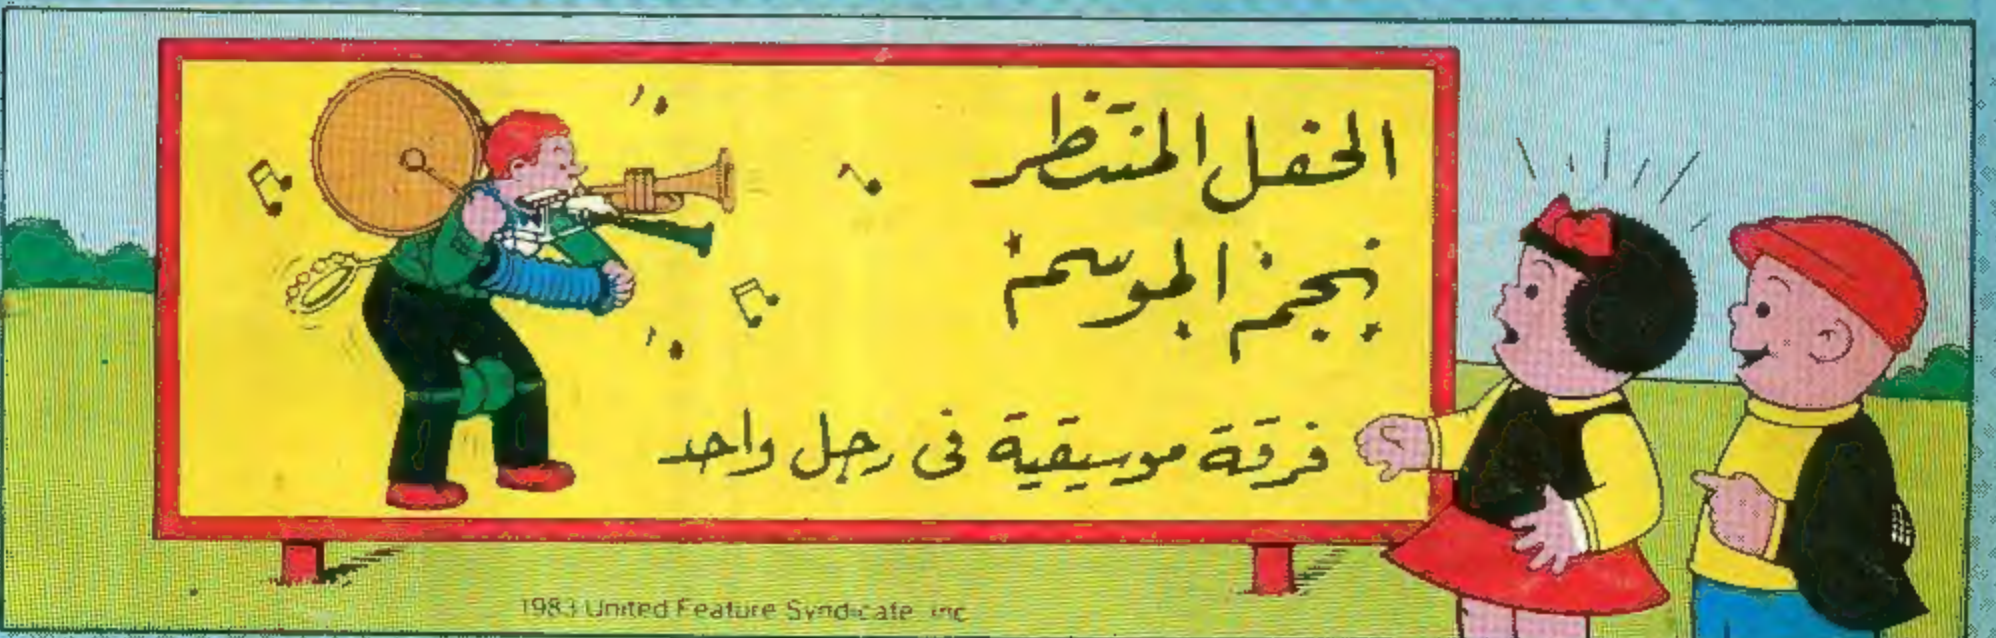 الحفل المنتظر
نجم الموسم
فرقة موسيقية فى رجل واحد
1983 United Feature Syndicate, Inc